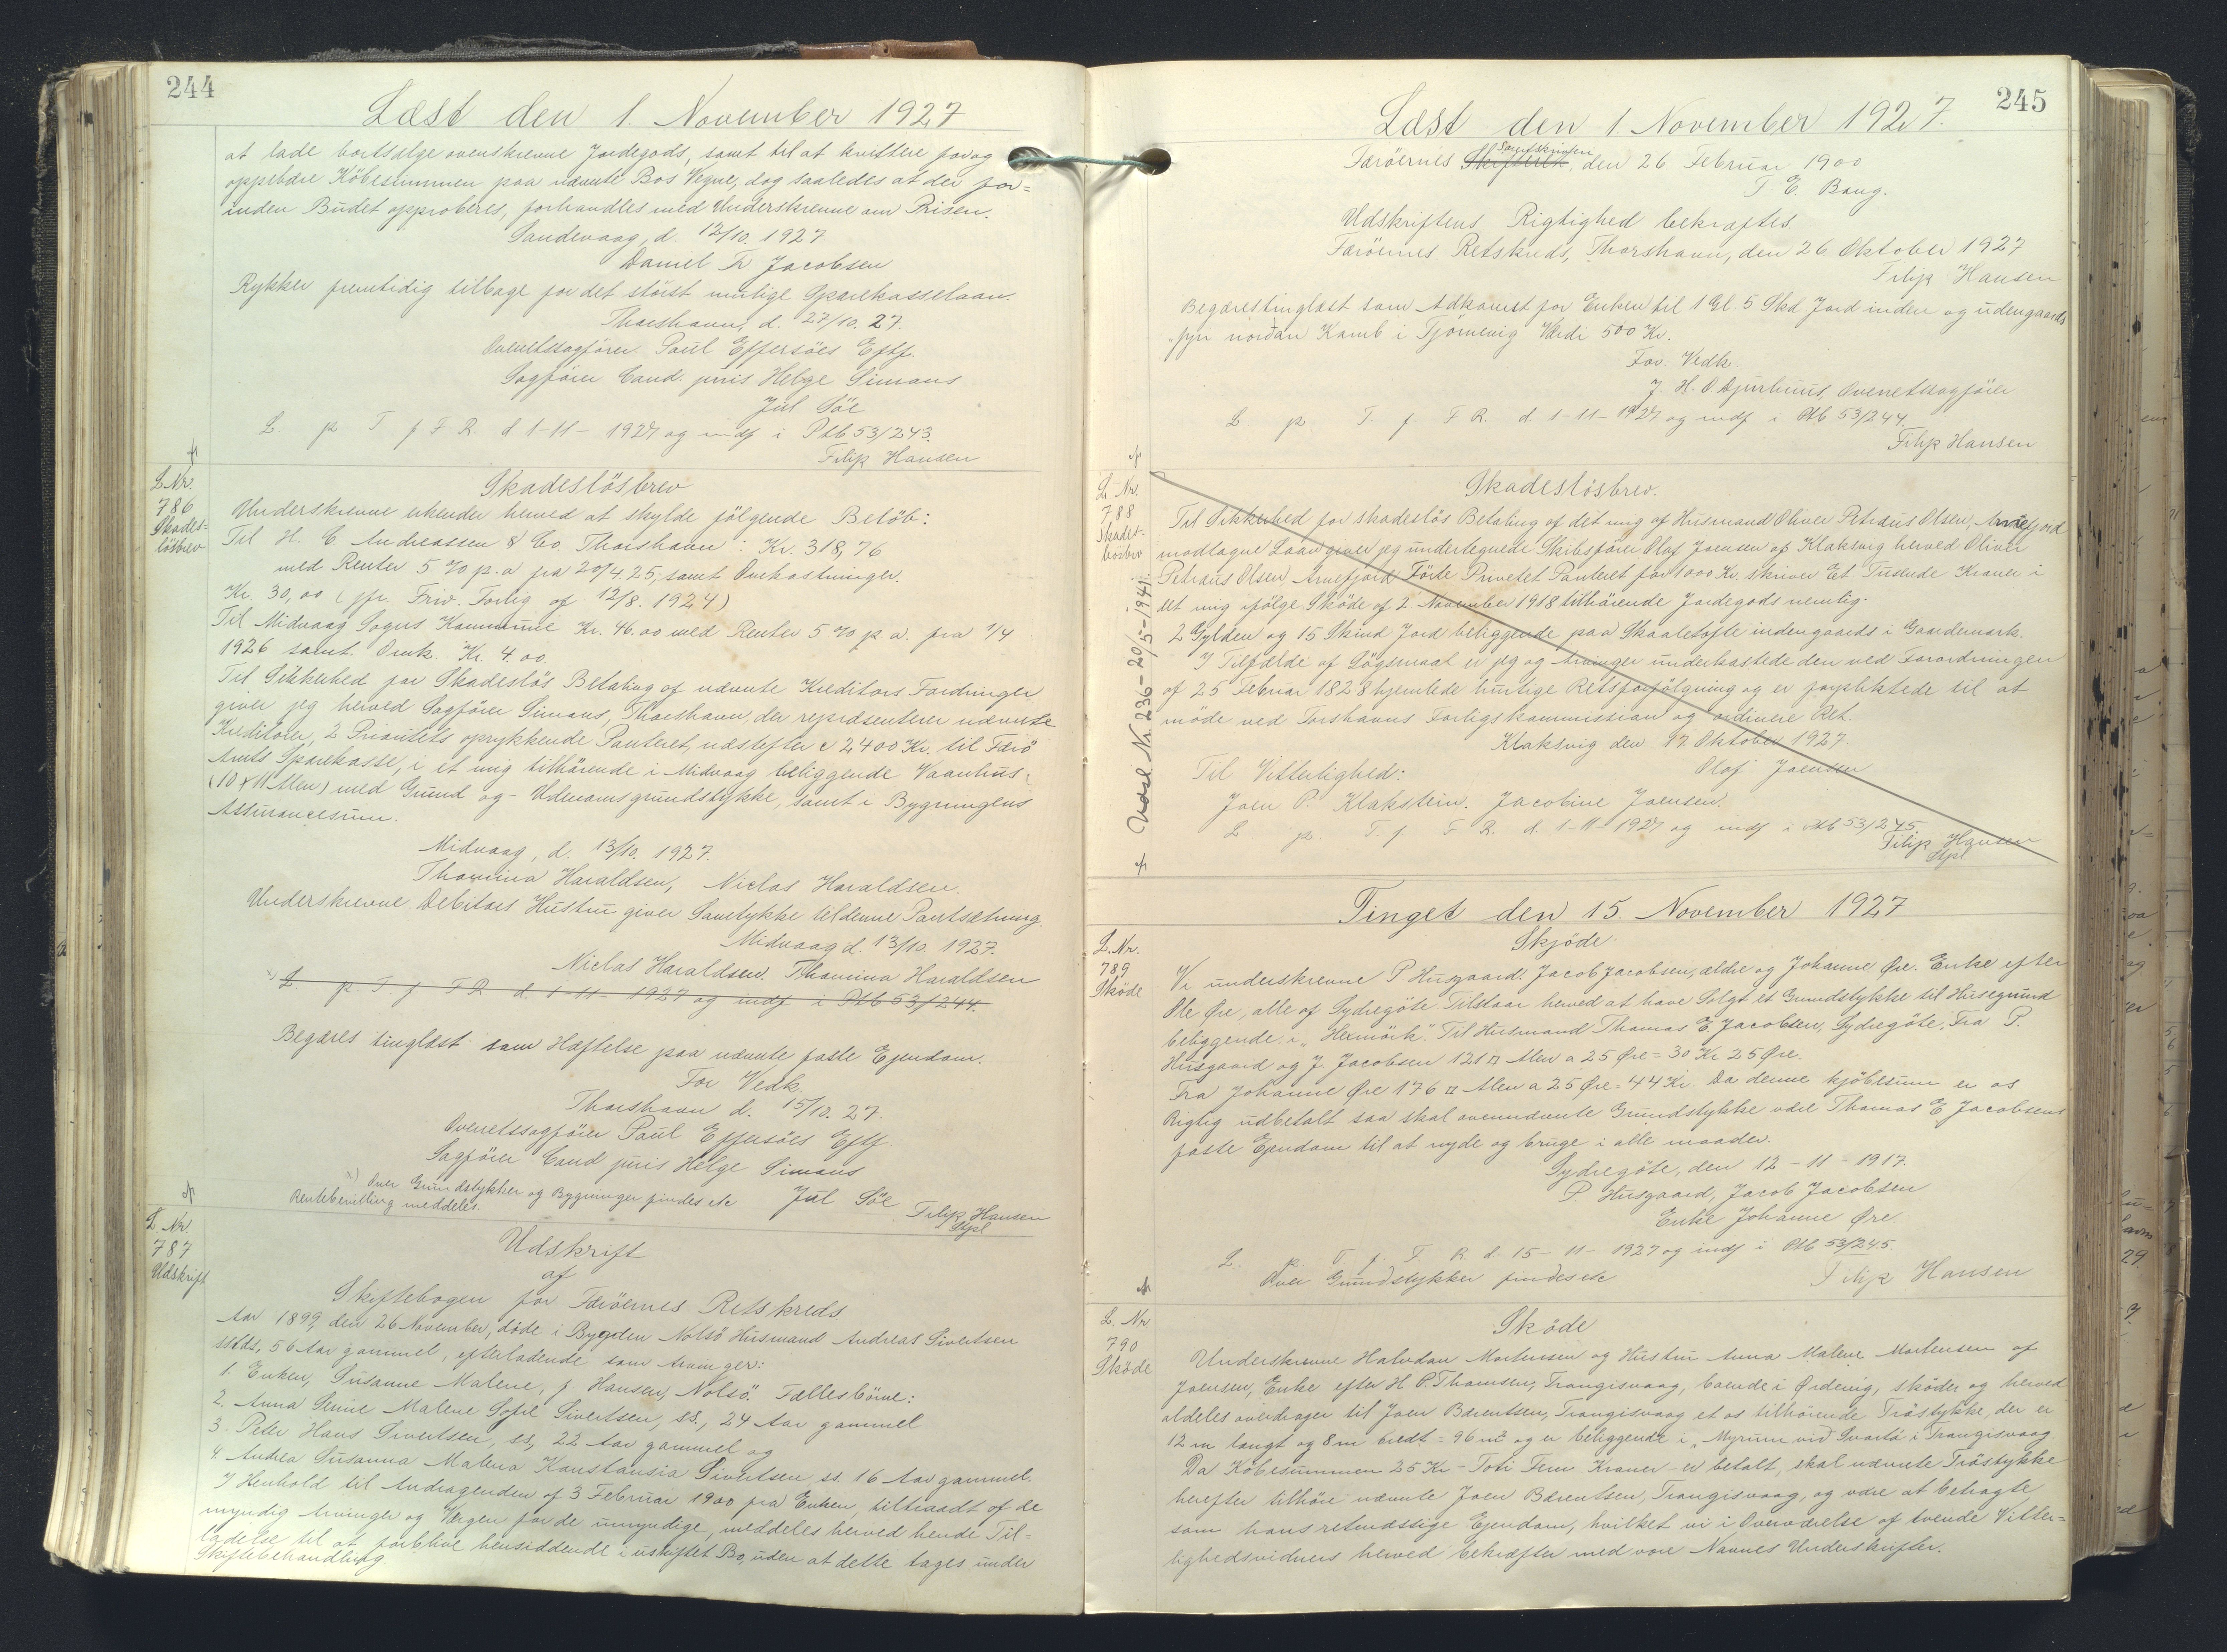 244
Læst den 1. November 1927
at lade bortsælge ovenskrevne Jordegods, samt til at kvittere for og
oppebære Köbesummen paa nævnte Bos Vegne, dog saaledes at der for=
inden Budet approberes, forhandles med Underskrevne om Prisen.
Sandevaag, d. 12/10. 1927
Daniel Fr Jacobsen
Rykker fremtidig tilbage for det störst mulige Sparekasselaan.
Thorshavn, d. 27/10. 27.
Overretssagförer Poul Effersöes Eftf.
Sagförer Cand. juris Helge Simons
Jul Söe
L. p T f F R. d 1-11-1927 og indf i Ptb 53/243.
Filip Hansen
L Nr.
786
Skades=
lösbrev
Skadeslösbrev
Underskrevne erkender herved at skylde fölgende Belöb:
Til H. C Andreassen & Co. Thorshavn: Kr. 318,76
med Renter 5 % p. a fra 20/4 25, samt Omkostninger.
Kr. 30,00 (jfr. Friv. Forlig af 12/8. 1924)
Til Midvaag Sogns Kommune Kr. 46.00 med Renter 5 % p a. fra 1/4
1926 samt. Omk. Kr. 4.00.
Til Sikkerhed for Skadeslös Betaling af nævnte Kreditors Fordringer
giver jeg herved Sagförer Simons, Thorshavn, der repræsenterer nævnte
Kreditorer, 2 Prioritets oprykkende Panteret, næstefter c 2400 Kr. til Færö
Amts Sparekasse, i et mig tilhörende i Midvaag beliggende Vaanhus:
(10 x 11 Alen) med Grund og - Udenomsgrundstykke, samt i Bygningens
Assurancesum.
Midvaag, d. 13/10. 1927.
Thomina Haraldsen, Niclas Haraldsen.
Underskrevne Debitors Hustru giver Samtykke til denne Pantsætning.
Midvaag d. 13/10 1927.
Niclas Haraldsen. Thomina Haraldsen
x) L. p. T. f F R d. 1-11-1927 og indf. i Ptb 53/244.
Begæres tinglæst som Hæftelse paa nævnte faste Ejendom.
For Vedk.
Thorshavn d. 15/10. 27.
Overretssagförer Poul Effersöes Eftf
Sagförer Cand juris Helge Simons
Jul Söe
x) Over Grundstykker og Bygninger findes etc
Rentebevilling meddeles.
Filip Hansen
Stpl
L. Nr
787
Udskrift
Udskrift
af
Skiftebogen for Færöernes Retskreds
Aar 1899, den 26 November, döde i Bygden Nolsö Husmand Andreas Sivertsen
sstds, 56 Aar gammel, efterladende som Arvinger:
1. Enken, Susanne Malene, f. Hansen, Nolsö. Fællesbörn:
2. Anna Sunne Malene Sofie Sivertsen, ss., 24 Aar gammel
3. Peter Hans Sivertsen, ss, 22 Aar gammel og
4. Andrea Susanna Malena Konstansia Sivertsen ss. 16 Aar gammel.
I Henhold til Andragenden af 3 Februar 1900 fra Enken, tiltraadt af de
myndig Arvinger og Værgen for de umyndige, meddeles herved hende Til=
ladelse til at forblive hensiddende i uskiftet Bo, uden at dette tages under
Skiftebehandling.
245
Læst den 1. November 1927.
Færöernes Skifteret Sorenskriveri, den 26 Februar 1900
T E. Bang.
Udskriftens Rigtighed bekræftes
Færöernes Retskreds, Thorshavn, den 26 Oktober 1927
Filip Hansen
Begæres tinglæst som Adkomst for Enken til 1 Gl. 5 Skd Jord inden og udengaards
"fyri nordan Kamb i Tjörnevig Værdi 500 Kr.
For Vedk.
J. H. O Djurhuus, Overretssagförer
L. p. T. f F R. d 1-11-1927 og indf i Ptb 53/244.
Filip Hansen
L. Nr.
788
Skades-
lösbrev
Udsl. Nr. 236-20/5-1941.
Skadeslösbrev.
Til Sikkerhed for skadeslös Betaling af dit mig af Husmand Oliver Petræus Olsen, Arnefjord
modtagne Laan giver jeg undertegnede Skibsförer Olaf Joensen af Klaksvig herved Oliver
Petræus Olsen, Arnefjord Förste Privetet Panteret for 1000 Kr. skriver Et Tusende Kroner i
det mig ifölge Sköde af 2. November 1918 tilhörende Jordegods nemlig:
2 Gylden og 15 Skind Jord beliggende paa Skaaletofte indengaards i Gaardemark.
I Tilfælde af Sögsmaal er jeg og Arvinger underkastede den ved Forordningen
af 25 Februar 1828 hjemlede hurtige Retsforfölgning og er forpliktede til at
möde ved Torshavns Forligskommission og ordinære Ret.
Klaksvig den 17. Oktober 1927.
Olaf Joensen
Til Vitterlighed:
Joen P. Klakstein. Jacobine Joensen.
L. p. T. f F R. d. 1-11-1927 og indf i Ptb 53/245.
Filip Hansen
Stpl
Tinget den 15. November 1927
L. Nr.
789
Sköde
Skjöde
Vi underskrevne P Husgaard. Jacob Jacobsen, ældre og Johanne Øre. Enke efter
Ole Øre, alle af Sydregöte. Tilstaar herved at have Solgt et Grundstykke til Husegrund
beliggende i "Heimörk". Til Husmand Thomas E. Jacobsen, Sydregöte. Fra P.
Husgaard og J. Jacobsen 121 □ Alen a 25 Øre = 30 Kr 25 Øre.
Fra Johanne Øre 176 □ Alen a 25 Øre = 44 Kr. Da denne kjöbesum er os
Rigtig udbetalt saa skal ovennævnte Grundstykke være Thomas E Jacobsens
faste Ejendom til at nyde og bruge i alle maader.
Sydregöte, den 12-11-1917.
P Husgaard, Jacob Jacobsen
Enke Johanne Øre.
L. p. T f. F. R. d. 15-11-1927 og indf i Ptb 53/245.
Over Grundstykker findes etc
Filip Hansen
L. Nr
790
Sköde
Sköde
Underskrevne Halvdan Mortensen og Hustru Anna Malene Mortensen af
Joensen, Enke efter H. P. Thomsen, Trangisvaag, boende i Ørdevig, sköder og herved
aldeles overdrager til Joen Bærentsen, Trangisvaag et os tilhörende Tröstykke, der er
12 m langt og 8 m bredt = 96 m² og er beliggende i "Myrum vid Svartá i Trangisvaag
Da Köbesummen 25 Kr - Toti Fem Kroner - er betalt, skal nævnte Tröstykke
herefter tilhöre nævnte Joen Bærentsen, Trangisvaag, og være at betragte
som hans retmæssige Ejendom, hvilket vi i Overværelse af tvende Vitter=
lighedsvidners herved bekræfter med vore Navnes Underskrifter.